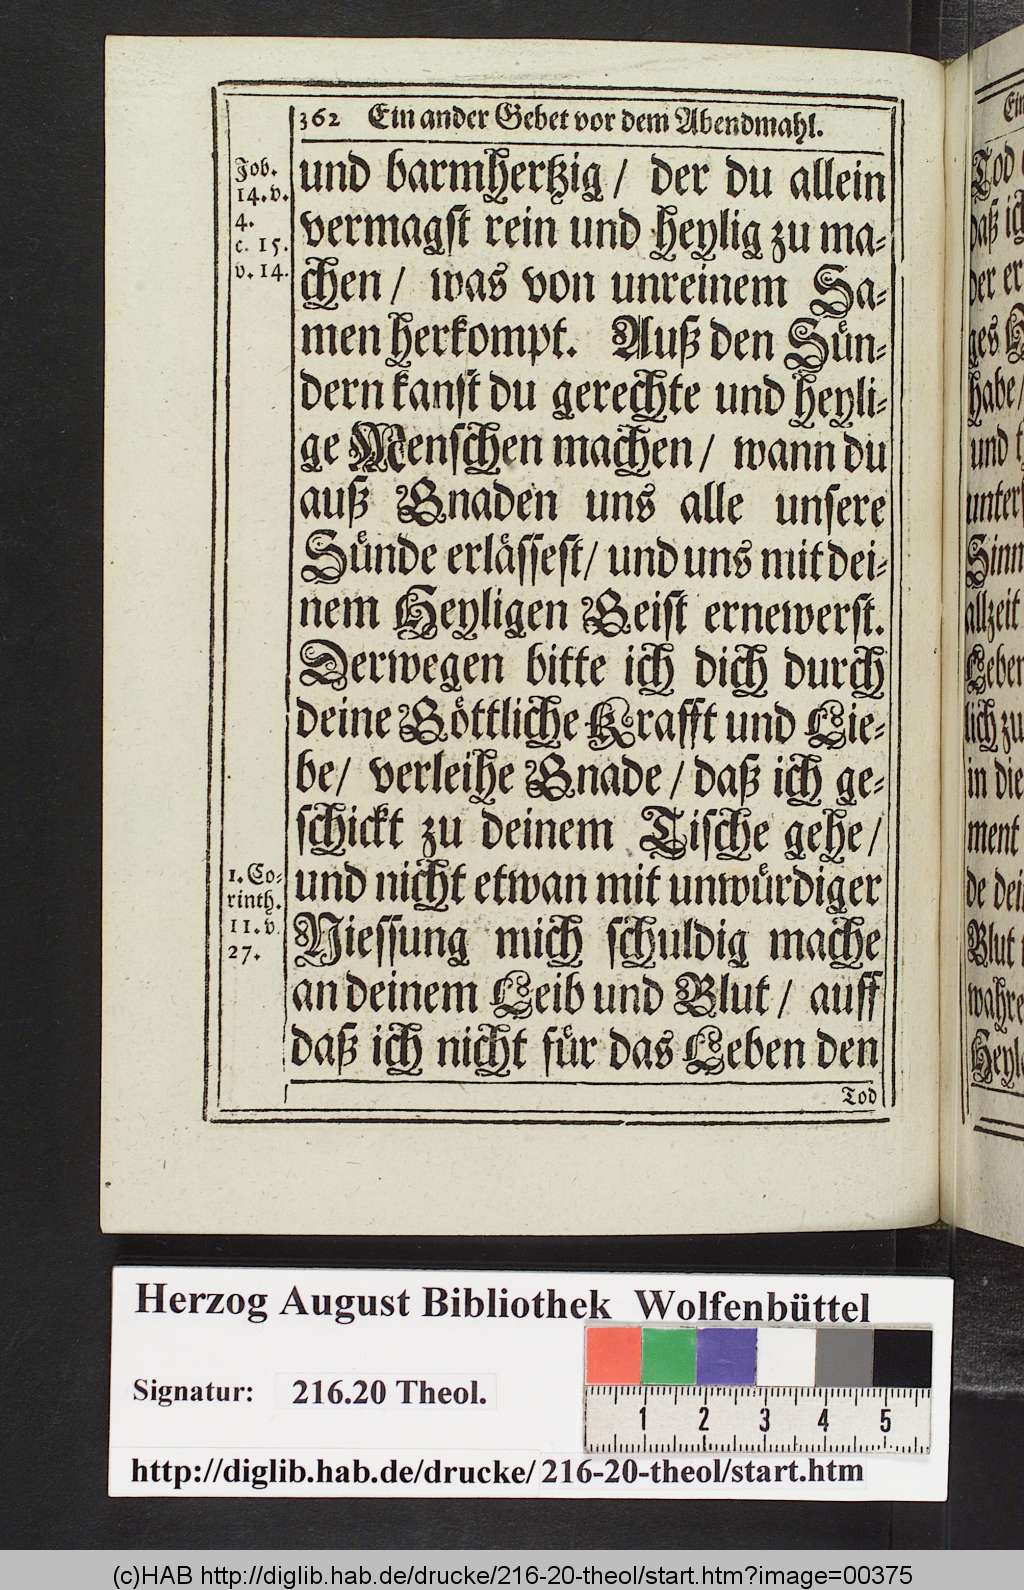 362 Ein ander Gebet vor dem Abendmahl.
Job.
14. v.
4.
c. 15.
v. 14.
und barmhertzig / der du allein
vermagst rein und heylig zu ma-
chen / was von unreinem Sa-
men herkompt. Auß den Sün-
dern kanst du gerechte und heyli-
ge Menschen machen / wann du
auß Gnaden uns alle unsere
Sünde erlässest / und uns mit dei-
nem Heyligen Geist ernewerst.
Derwegen bitte ich dich durch
deine Göttliche Krafft und Lie-
be / verleihe Gnade / daß ich ge-
schickt zu deinem Tische gehe /
und nicht etwan mit unwürdiger
Niessung mich schuldig mache
an deinem Leib und Blut / auff
daß ich nicht für das Leben den
1. Co-
rinth.
11. v.
27.
Tod
Ein
Tod
daß ich
der er
ges
habe /
und
unters
Sinn
allzeit
Leben
lich zu
in die
ment
de dei
Blut
wahre
Heyl
Herzog August Bibliothek Wolfenbüttel
Signatur: 216.20 Theol.
1 2 3 4 5
http://diglib.hab.de/drucke/216-20-theol/start.htm
(c)HAB http://diglib.hab.de/drucke/216-20-theol/start.htm?image=00375